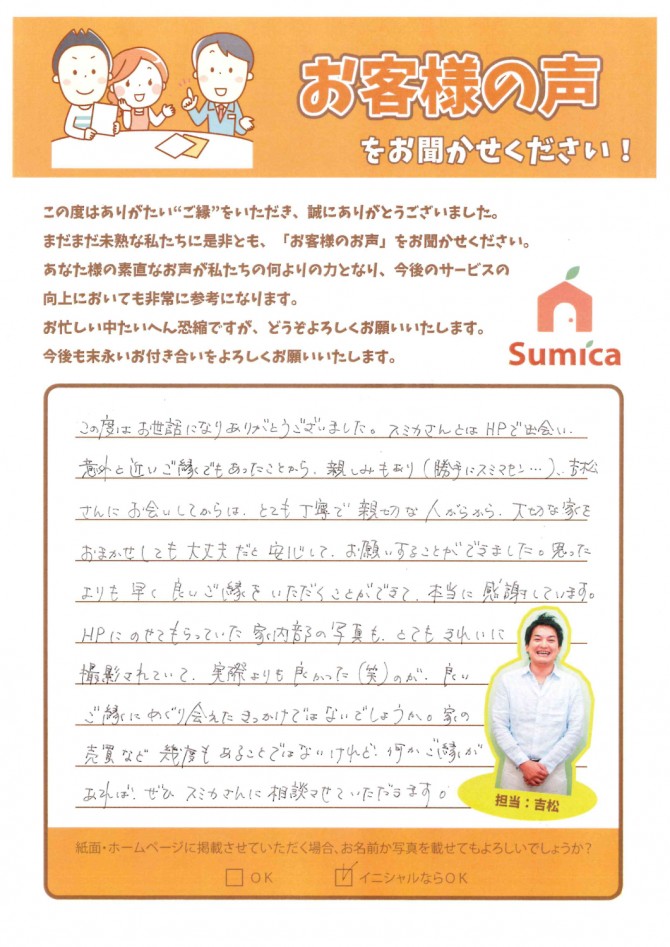 お客様の声
をお聞かせください！
この度はありがたい“ご縁”をいただき、誠にありがとうございました。
まだまだ未熟な私たちに是非とも、「お客様のお声」をお聞かせください。
あなた様の素直なお声が私たちの何よりの力となり、今後のサービスの
向上においても非常に参考になります。
お忙しい中たいへん恐縮ですが、どうぞよろしくお願いいたします。
今後も末永いお付き合いをよろしくお願いいたします。
Sumica
この度はお世話になりありがとうございました。スミカさんとはHPで出会い、
意外と近いご縁でもあったことから、親しみもあり(勝手にスミマセン…)、吉松
さんにお会いしてからは、とても丁寧で親切な人がらから、大切な家を
おまかせしても大丈夫だと安心して、お願いすることができました。思った
よりも早く良いご縁をいただくことができて、本当に感謝しています。
HPにのせてもらっていた家内部の写真も、とてもきれいに
撮影されていて、実際よりも良かった(笑)のが、良い
ご縁にめぐり会えたきっかけではないでしょうか。家の
売買など幾度もあることではないけれど、何かご縁が
あれば、ぜひスミカさんに相談させていただきます。
担当：吉松
紙面・ホームページに掲載させていただく場合、お名前か写真を載せてもよろしいでしょうか？
OK
イニシャルならOK